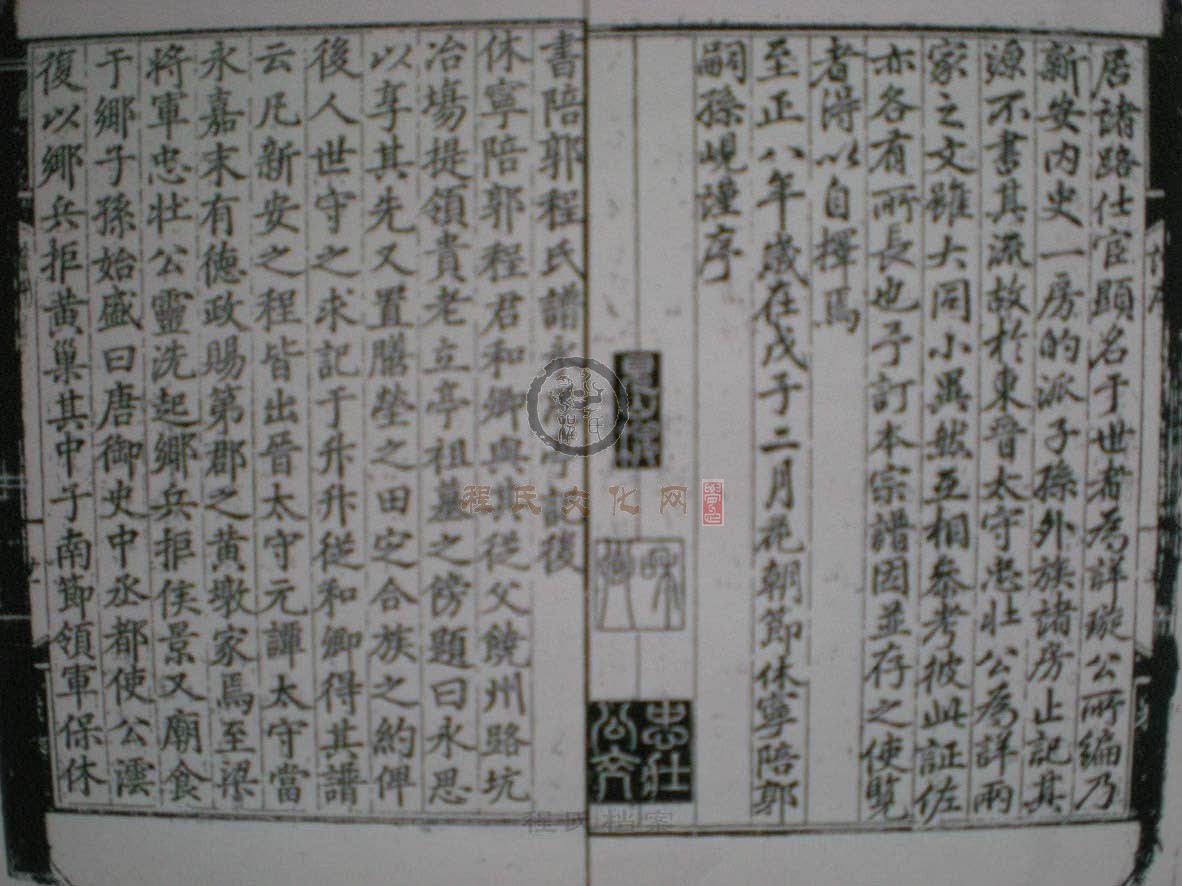 居諸路仕官顯名于世者為詳璇公所編乃
新安内史一房的派子孫外族諸房止記其
源不書其流故於東晉太守忠壯公為詳兩
家之文雖大同小異然互相參考彼此証佐
亦各有所長也予訂本宗譜因並存之使覧
者得以自擇焉
至正八年歲在戊子二月花朝節休寧陪郭
嗣孫峴謹序
忠壯
公裔
書陪郭程氏譜永思亭記後
休寧陪郭程君和卿與其從父饒州路坑
冶場提領貴老立亭祖墓之傍題曰永思
以享其先又置膳塋之田定合族之約俾
後人世守之求記于升升從和卿得其譜
云凡新安之程皆出晉太守元譚太守當
永嘉末有德政賜第郡之黄墩家焉至梁
將軍忠壮公靈洗起鄉兵拒侯景又廟食
于鄉子孫始盛曰唐御史中丞都使公澐
復以鄉兵拒黄巢其中子南節領軍保休
程氏文化网
程氏档案